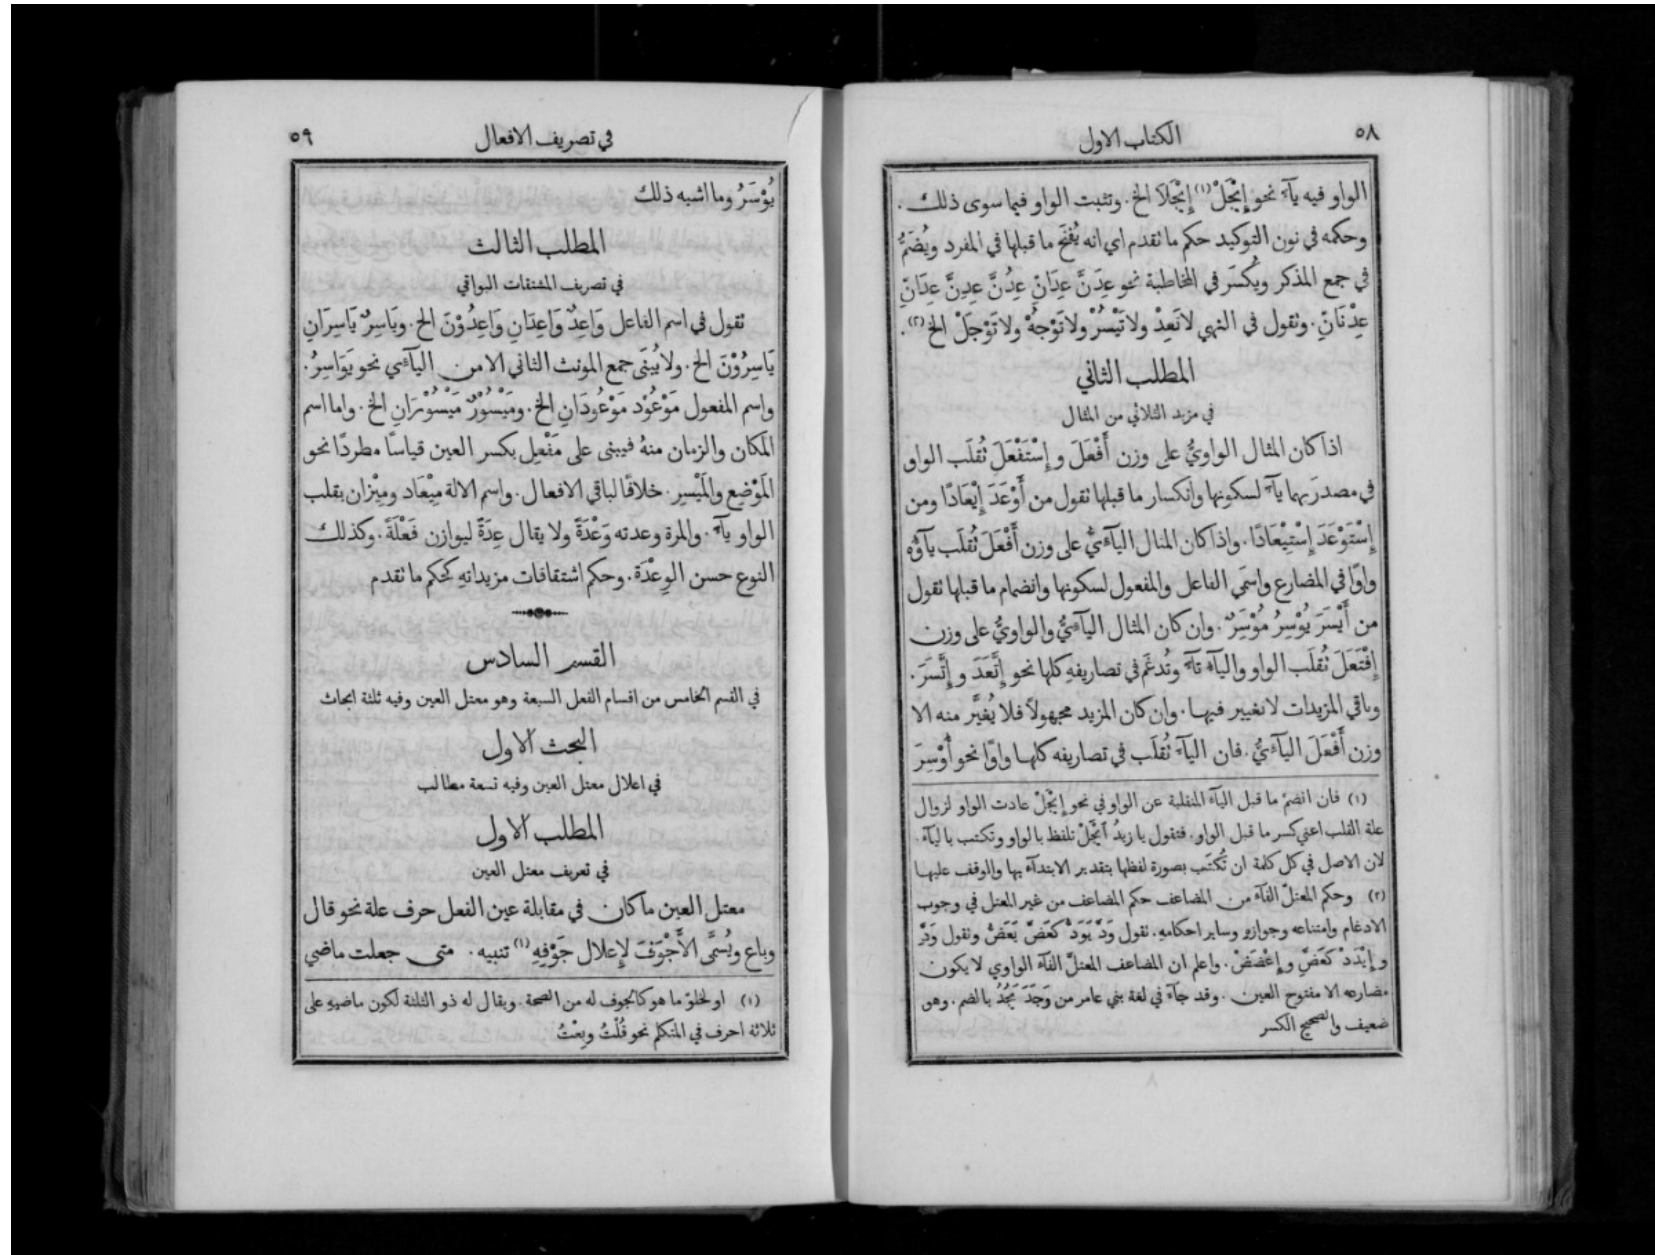 ٥٨
الكتاب الاول
الواو فيه يآءً نحو إِيْجَلْ (١) إِيْجَلَا الخ. وتثبت الواو فيما سوى ذلك.
وحكمه في نون التوكيد حكم ما تقدم اي انه يُفتَح ما قبلها في المفرد ويُضَمُّ
في جمع المذكر ويُكسَر في المخاطبة نحو عِدَنَّ عِدَانِّ عِدُنَّ عِدِنَّ عِدَانِّ
عِدْنَانِّ. وتقول في النهي لاتَعِدْ ولا تَيْسُرْ ولا تَوْجُهْ ولا تَوْجَلْ الخ (٢).
المطلب الثاني
في مزيد الثلاثي من المثال
اذا كان المثال الواويُّ على وزن أَفْعَلَ و إِسْتَفْعَلَ تُقلَب الواو
في مصدرَيهما يآءً لسكونها وانكسار ما قبلها تقول من أَوْعَدَ إِيْعَادًا ومن
إِسْتَوْعَدَ إِسْتِيْعَادًا. واذا كان المثال اليآءيُّ على وزن أَفْعَلَ تُقلَب يآؤُه
واوًا في المضارع واسمَي الفاعل والمفعول لسكونها وانضمام ما قبلها تقول
من أَيْسَرَ يُوْسِرُ مُوْسِرٌ. وان كان المثال اليآءيُّ والواويُّ على وزن
إِفْتَعَلَ تُقلَب الواو واليآء تآءً وتُدغَم في تصاريفهِ كلها نحو إِتَّعَدَ و إِتَّسَرَ.
وباقي المزيدات لا تغيير فيها. وان كان المزيد مجهولاً فلا يُغيَّر منه الا
وزن أَفْعَلَ اليآءيُّ. فان اليآءَ تُقلَب في تصاريفه كلها واوًا نحو أُوْسِرَ
(١) فان انضمّ ما قبل اليآء المنقلبة عن الواو في نحو إِيْجَلْ عادت الواو لزوال
علة القلب اعني كسر ما قبل الواو. فتقول يا زيدُ اَيْجَلْ تلفظ بالواو وتكتب باليآء.
لان الاصل في كل كلمة ان تُكتَب بصورة لفظها بتقدير الابتدآء بها والوقف عليها
(٢) وحكم المعتلّ الفآء من المضاعف حكم المضاعف من غير المعتل في وجوب
الادغام وامتناعه وجوازهِ وساير احكامهِ. تقول وَدَّ يَوَدُّ كَعَضَّ يَعَضُّ وتقول وَدَّ
و إِيْدَدْ كَعَضَّ و إِعْضَضْ. واعلم ان المضاعف المعتلّ الفآء الواوي لا يكون
مضارعه الا مفتوح العين. وقد جآء في لغة بني عامر من وَجَدَ يَجُدُ بالضم. وهو
ضعيف والصحيح الكسر
٨
في تصريف الافعال
٥٩
يُوْسَرُ وما اشبه ذلك
المطلب الثالث
في تصريف المشتقات البواقي
تقول في اسم الفاعل وَاعِدٌ وَاعِدَانِ وَاعِدُوْنَ الخ. ويَاسِرٌ يَاسِرَانِ
يَاسِرُوْنَ الخ. ولا يُبنَى جمع المونث الثاني الا من اليآءي نحو يَوَاسِرُ.
واسم المفعول مَوْعُوْد مَوْعُودَانِ الخ. ومَيْسُوْرٌ مَيْسُوْرَانِ الخ. واما اسم
المكان والزمان منهُ فيبنى على مَفْعِل بكسر العين قياسًا مطردًا نحو
المَوْضِع والمَيْسِر. خلافًا لباقي الافعال. واسم الالة مِيْعَاد ومِيْزان بقلب
الواو يآءً. والمرة وعدته وَعْدَةً ولا يقال عِدَةً ليوازن فَعْلَةً. وكذلك
النوع حسن الوِعْدَة. وحكم اشتقاقات مزيداتهِ كحكم ما تقدم
القسم السادس
في القسم الخامس من اقسام الفعل السبعة وهو معتل العين وفيه ثلثة ابحاث
البحث الاول
في اعلال معتل العين وفيه تسعة مطالب
المطلب الاول
في تعريف معتل العين
معتل العين ما كان في مقابلة عين الفعل حرف علة نحو قال
وباع ويُسمَّى الأَجْوَفَ لإِعلال جَوْفِهِ (١) تنبيه. متى جعلت ماضي
(١) او لخلوّ ما هو كالجوف له من الصحة. ويقال له ذو الثلثة لكون ماضيهِ على
ثلاثة احرف في المتكلم نحو قُلْتُ وبِعْتُ